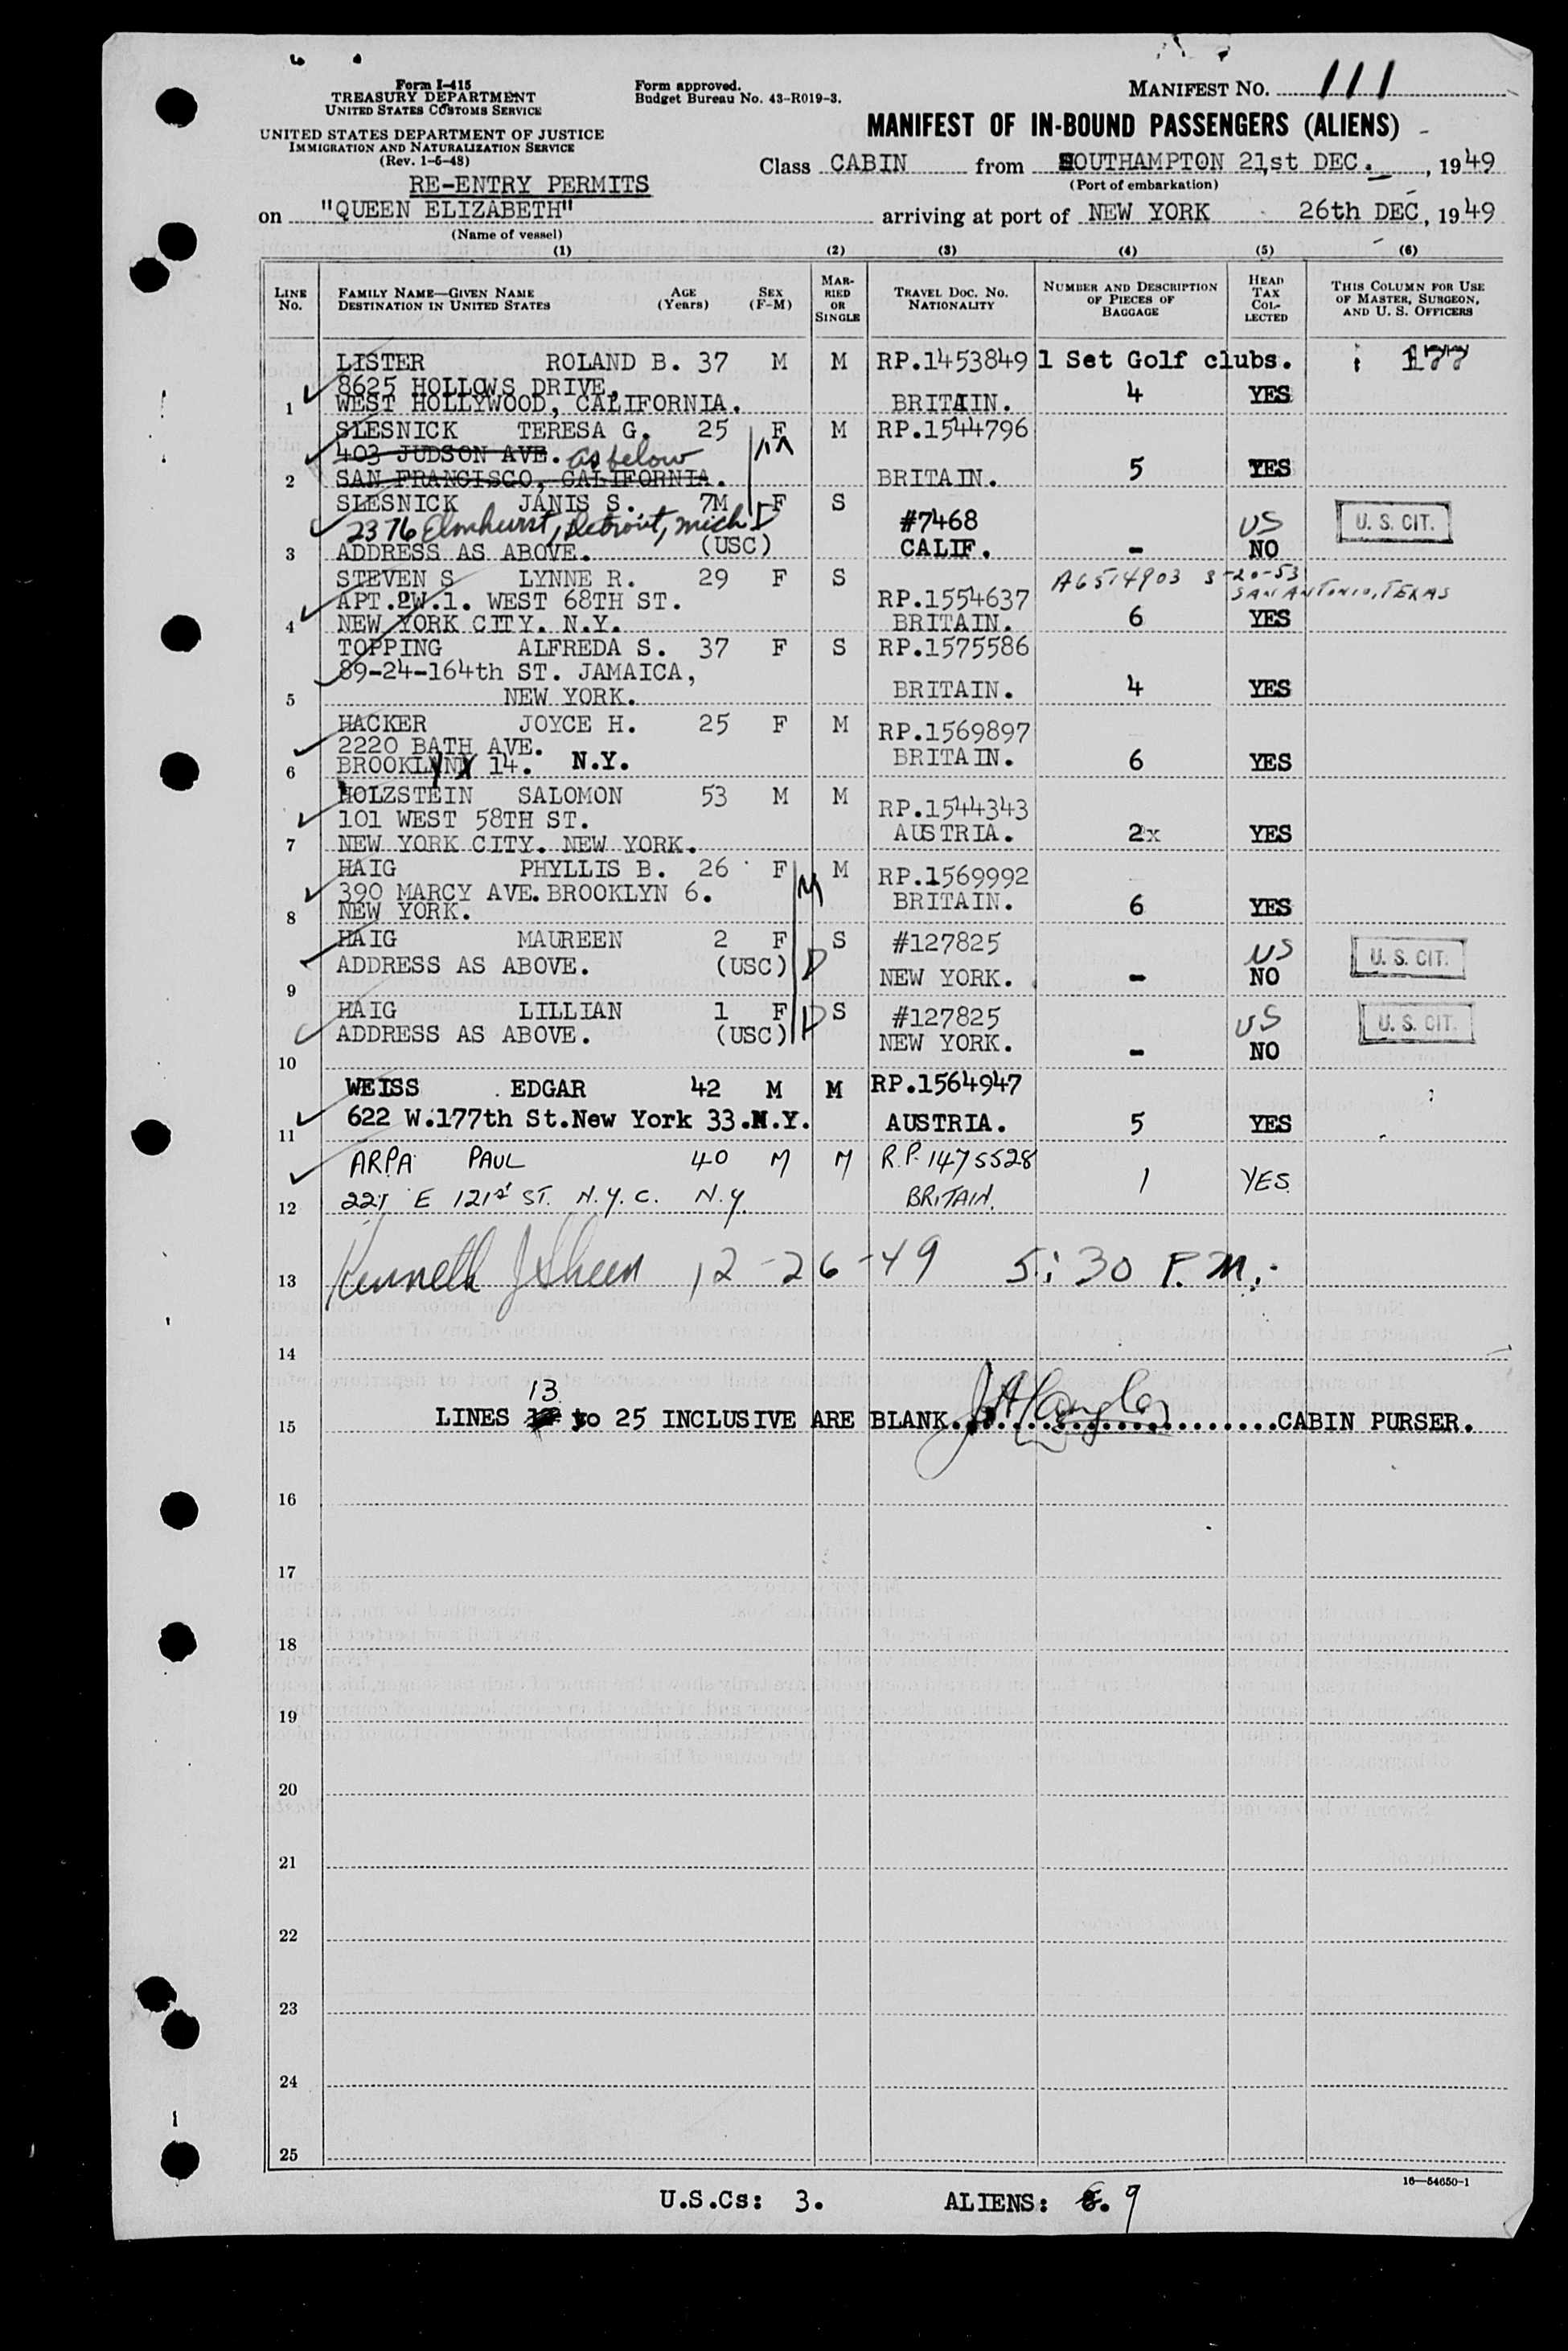 Form I-415
TREASURY DEPARTMENT
UNITED STATES CUSTOMS SERVICE
UNITED STATES DEPARTMENT OF JUSTICE
IMMIGRATION AND NATURALIZATION SERVICE
(Rev. 1-6-48)
RE-ENTRY PERMITS
Form approved.
Budget Bureau No. 43-R019-3.
MANIFEST NO. 111
MANIFEST OF IN-BOUND PASSENGERS (ALIENS)
Class CABIN from SOUTHAMPTON 21st DEC., 1949
(Port of embarkation)
on "QUEEN ELIZABETH" arriving at port of NEW YORK 26th DEC, 1949
(Name of vessel)
(1) (2) (3) (4) (5) (6)
LINE NO. FAMILY NAME—GIVEN NAME DESTINATION IN UNITED STATES AGE (Years) SEX (F-M) MARRIED OR SINGLE TRAVEL DOC. NO. NATIONALITY NUMBER AND DESCRIPTION OF PIECES OF BAGGAGE HEAD TAX COLLECTED THIS COLUMN FOR USE OF MASTER, SURGEON, AND U. S. OFFICERS
LISTER ROLAND B. 37 M M RP.1453849 1 Set Golf clubs. 177
8625 HOLLOWS DRIVE, 4 YES
1 WEST HOLLYWOOD, CALIFORNIA. BRITAIN.
SLESNICK TERESA G. 25 F M RP.1544796
403 JUDSON AVE. as below
2 SAN FRANCISCO, CALIFORNIA. BRITAIN. 5 YES
SLESNICK JANIS S. 7M F S
2376 Elmhurst, Detroit, Mich #7468 US U. S. CIT.
3 ADDRESS AS ABOVE. (USC) CALIF. - NO
STEVENS LYNNE R. 29 F S A6514903 3-20-53
APT.2W.1. WEST 68TH ST. RP.1554637 SAN ANTONIO, TEXAS
4 NEW YORK CITY. N.Y. BRITAIN. 6 YES
TOPPING ALFREDA S. 37 F S RP.1575586
89-24-164th ST. JAMAICA,
5 NEW YORK. BRITAIN. 4 YES
HACKER JOYCE H. 25 F M RP.1569897
2220 BATH AVE.
6 BROOKLYN 14. N.Y. BRITAIN. 6 YES
HOLZSTEIN SALOMON 53 M M RP.1544343
101 WEST 58TH ST.
7 NEW YORK CITY. NEW YORK. AUSTRIA. 2x YES
HAIG PHYLLIS B. 26 F M RP.1569992
390 MARCY AVE. BROOKLYN 6.
8 NEW YORK. BRITAIN. 6 YES
HAIG MAUREEN 2 F S #127825 US U. S. CIT.
ADDRESS AS ABOVE. (USC)
9 NEW YORK. - NO
HAIG LILLIAN 1 F S #127825 US U. S. CIT.
ADDRESS AS ABOVE. (USC) NEW YORK.
10 - NO
WEISS EDGAR 42 M M RP.1564947
11 622 W.177th St.New York 33.N.Y. AUSTRIA. 5 YES
ARPA PAUL 40 M M R.P. 1475528
12 221 E 121st ST. N.Y.C. N.Y. BRITAIN. 1 YES
13 Kenneth J Sheen 12-26-49 5:30 P.M.
14
13
15 LINES to 25 INCLUSIVE ARE BLANK. CABIN PURSER.
16
17
18
19
20
21
22
23
24
25
16—54650-1
U.S.Cs: 3. ALIENS: 8. 9